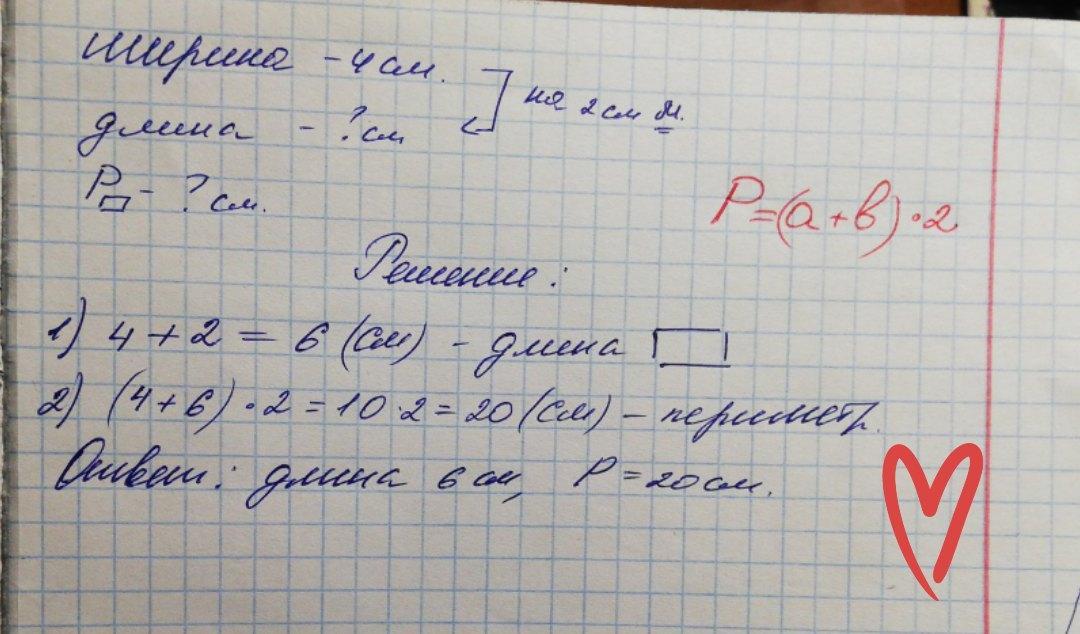 Ширина - 4 см.
длина - ? см
на 2 см м.
P▭ - ? см.
P=(a+b)·2
Решение:
1) 4 + 2 = 6 (см) - длина ▭
2) (4+6)·2=10·2=20(см) - периметр.
Ответ: длина 6 см, P=20см.